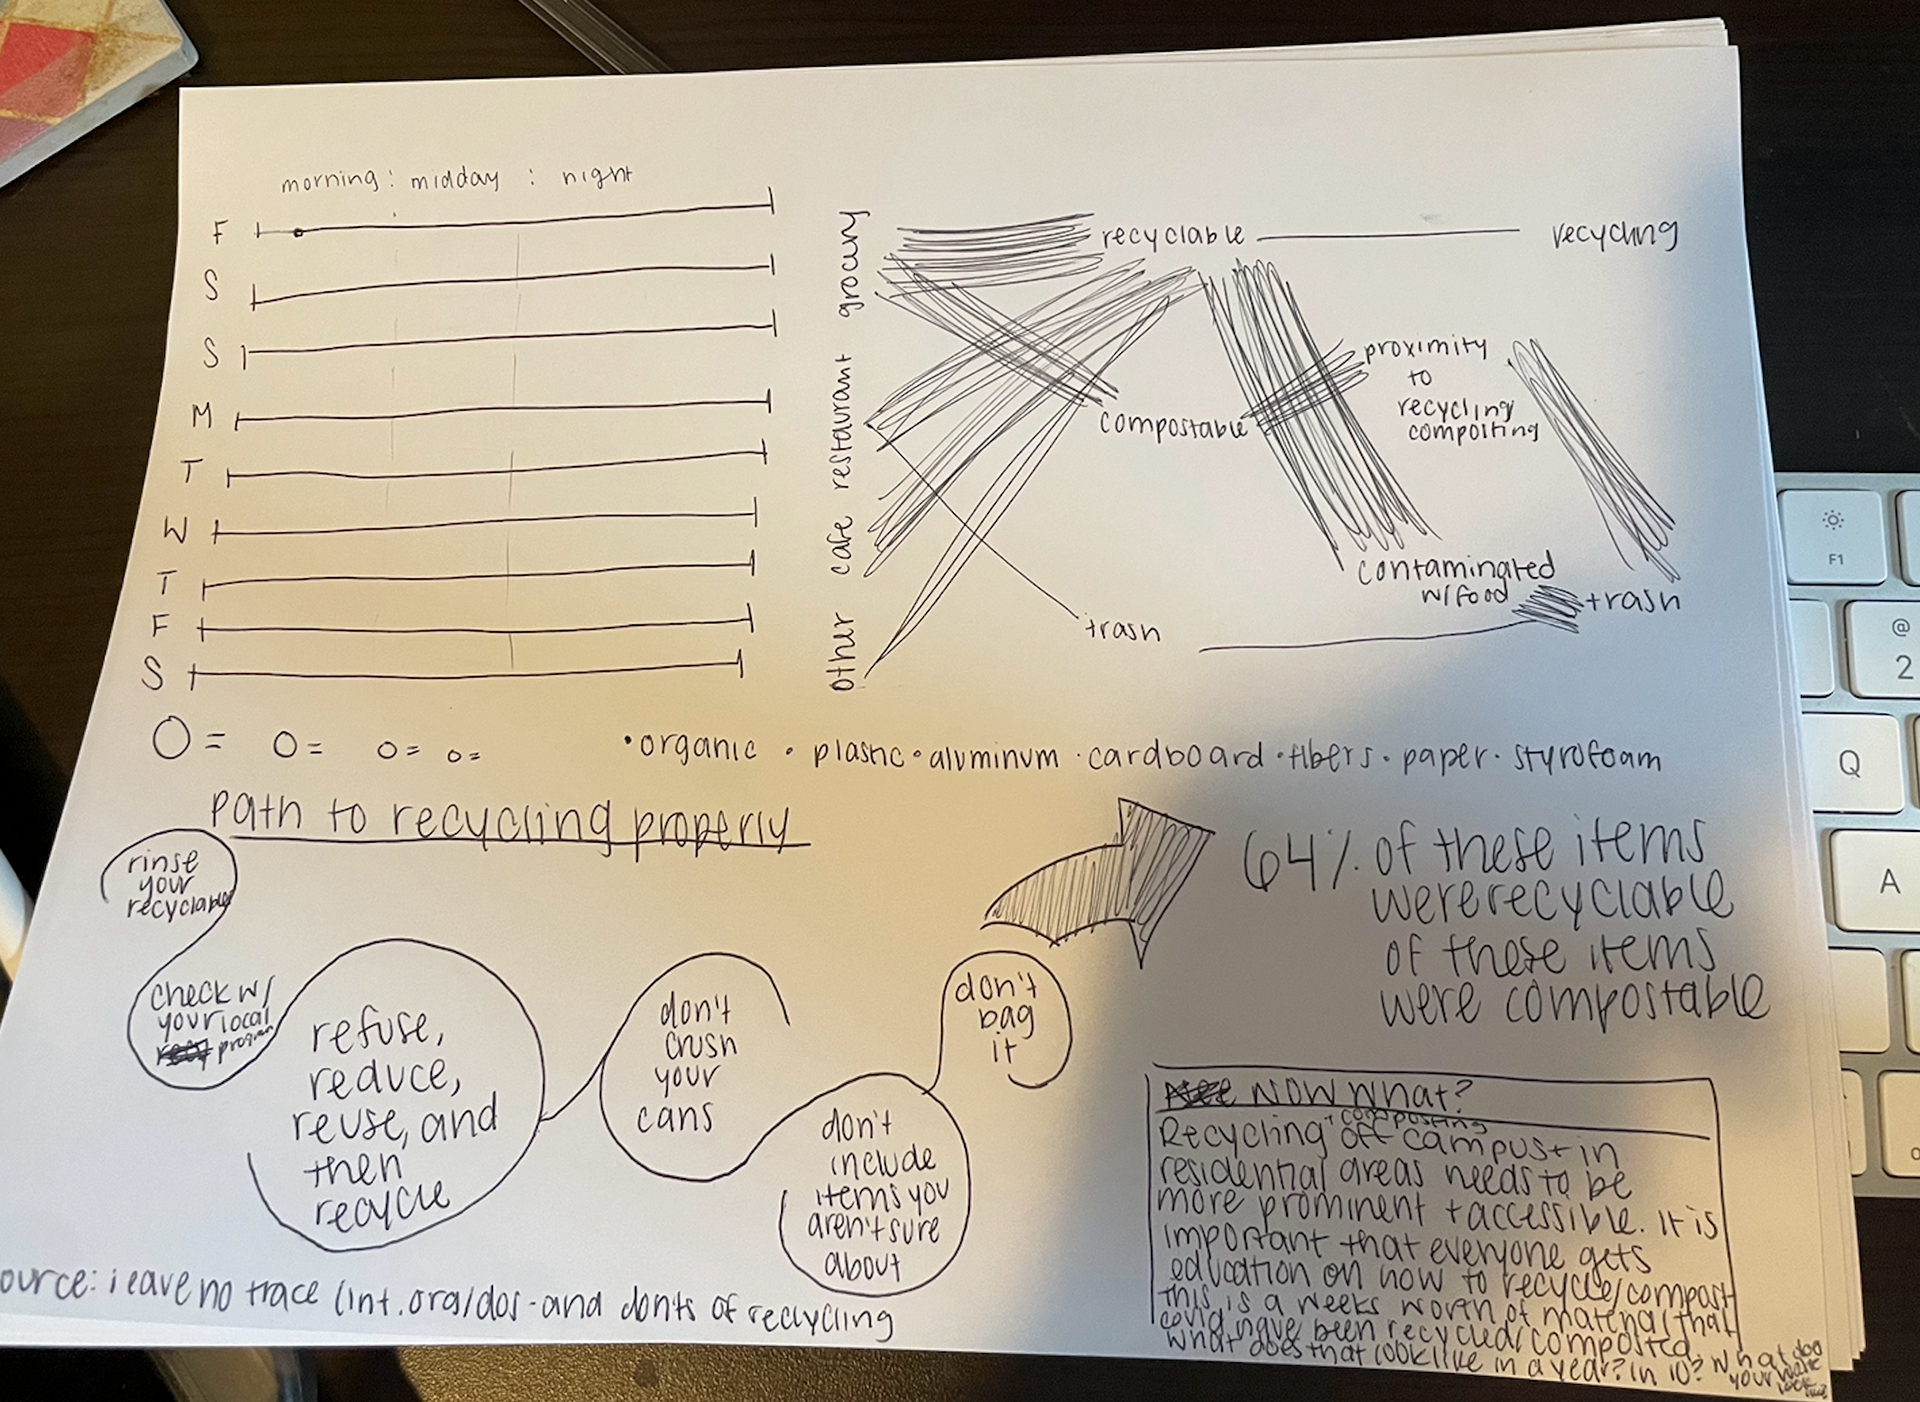 morning : midday : night
F
S
S
M
T
W
T
F
S
grocery
restaurant
cafe
other
recyclable
recycling
compostable
proximity
to
recycling
composting
contaminated
w/food
trash
trash
O = O = O = O =
• organic • plastic • aluminum • cardboard • fibers • paper • styrofoam
path to recycling properly
rinse
your
recyclable
check w/
your local
program
refuse,
reduce,
reuse, and
then
recycle
don't
crush
your
cans
don't
include
items you
aren't sure
about
don't
bag
it
64% of these items
were recyclable
of these items
were compostable
Now what?
Recycling + composting off campus + in
residential areas needs to be
more prominent + accessible. it is
important that everyone gets
education on how to recycle/compost
this is a weeks worth of material that
could have been recycled/composted.
what does that look like in a year? in 10? what doo
your
ource: leave no trace (int.org/dos-and donts of recycling
F1
@
2
Q
A